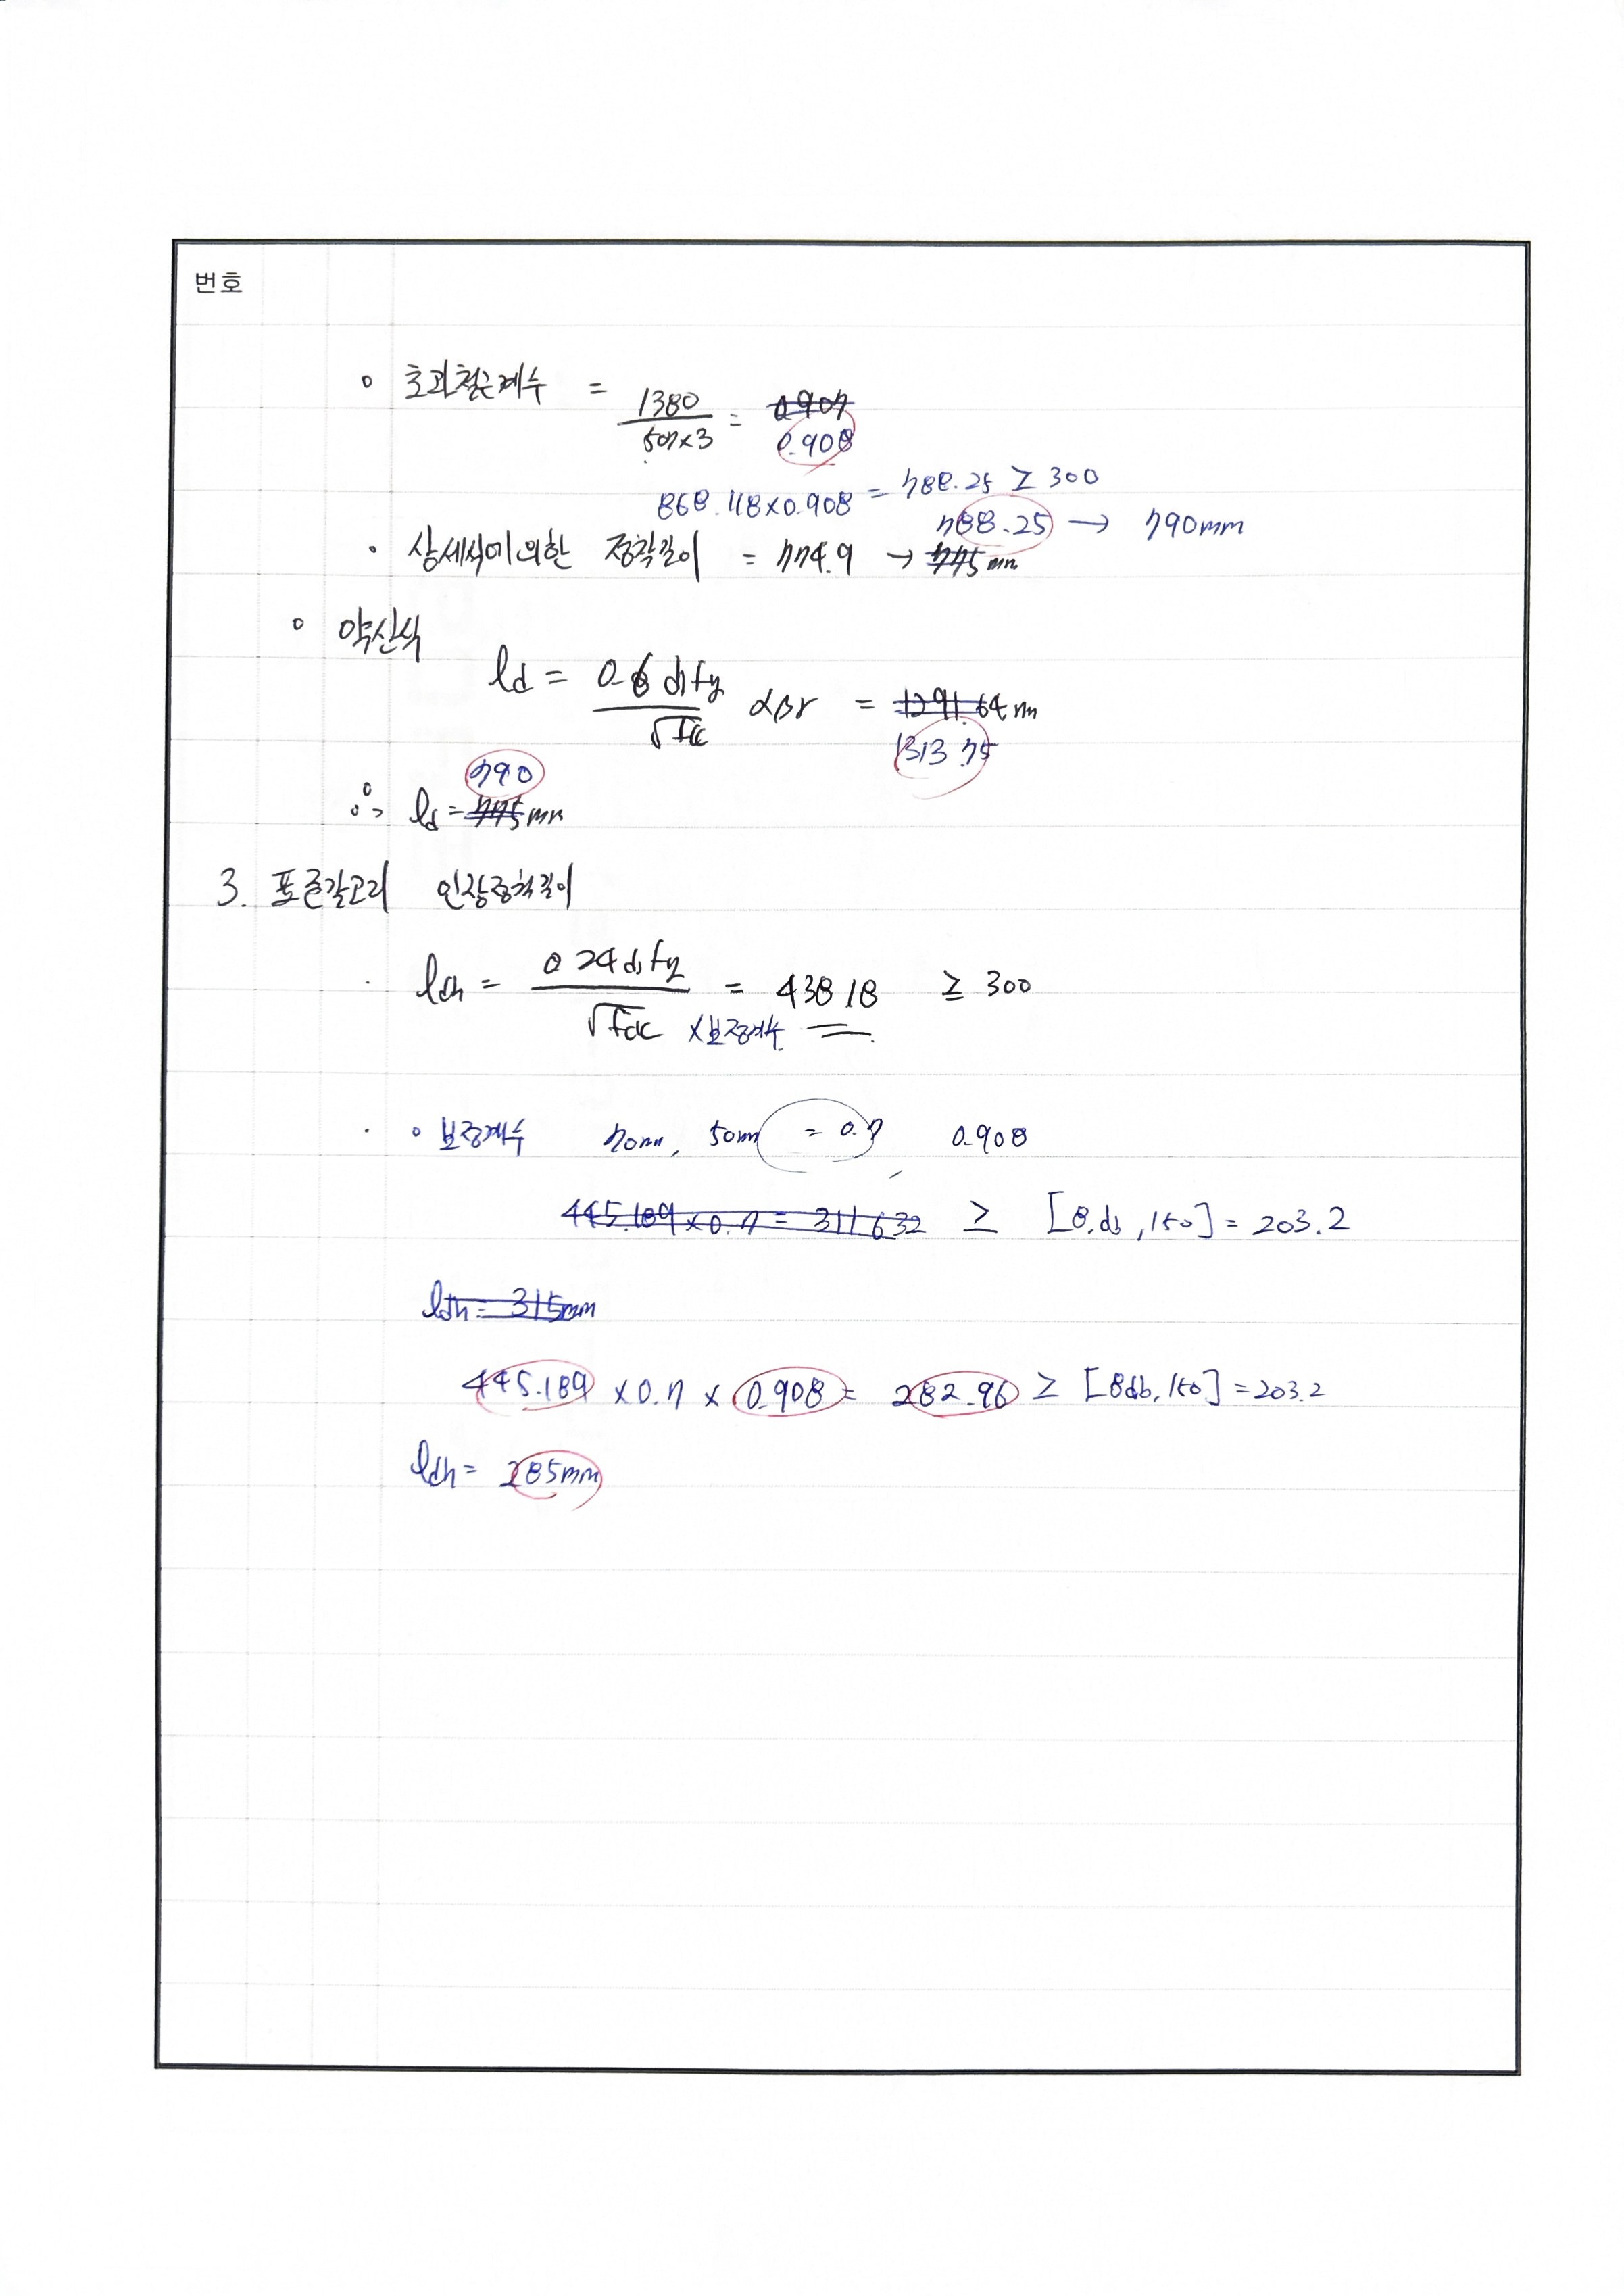 번호
∘ 초과철근계수 = 1380 / 507×3 = 0.907
0.908
868.118×0.908 = 788.25 ≥ 300
788.25 → 790mm
· 상세식에 의한 정착길이 = 774.9 → 775mm
∘ 약산식
ld = 0.6 db fy / √fck αβγ = 1291.64mm
1313.75
790
∴ ld = 775mm
3. 표준갈고리 인장정착길이
· ldh = 0.24 db fy / √fck = 438.18 ≥ 300
×보정계수
· ∘ 보정계수 70mm, 50mm = 0.7, 0.908
445.189×0.7 = 311.632 ≥ [8.db, 150] = 203.2
ldh = 315mm
445.189 × 0.7 × 0.908 = 282.96 ≥ [8db, 150] = 203.2
ldh = 285mm